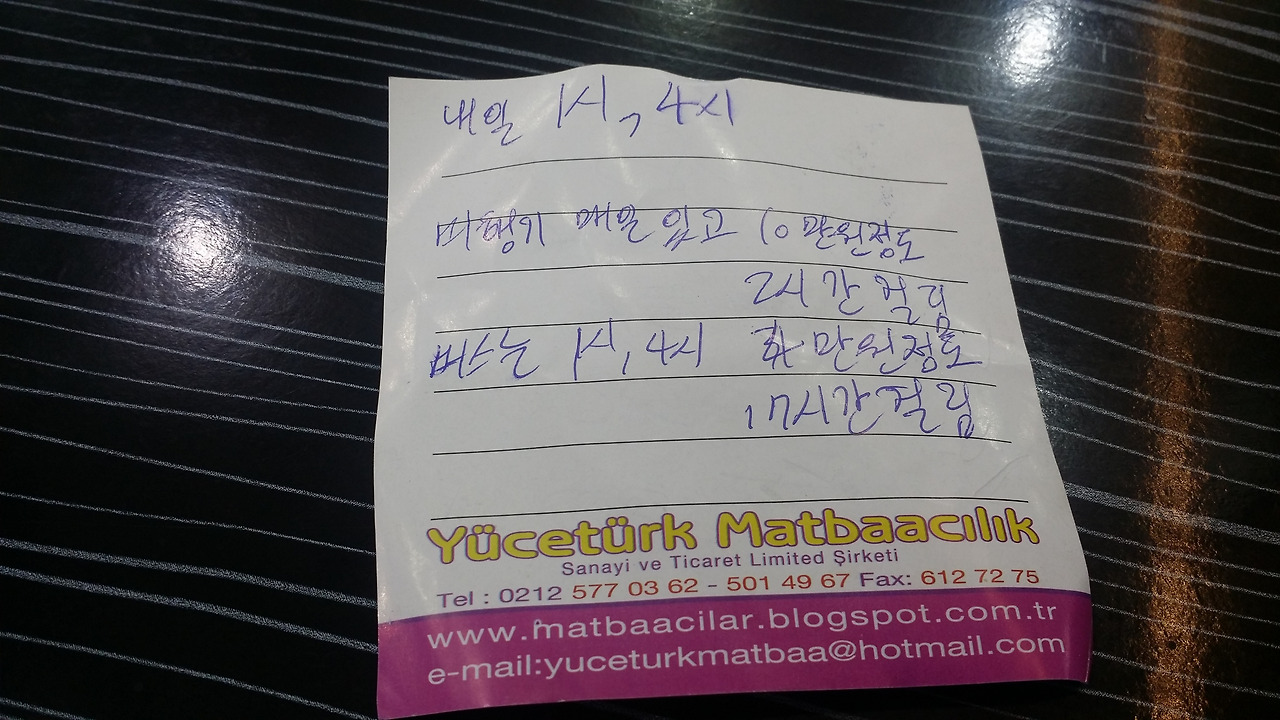 내일 1시, 4시
비행기 매일 있고 10만원정도
2시간 걸림
버스는 1시, 4시 만원정도
17시간걸림
Yücetürk Matbaacılık
Sanayi ve Ticaret Limited Şirketi
Tel : 0212 577 03 62 - 501 49 67 Fax: 612 72 75
www.matbaacilar.blogspot.com.tr
e-mail:yuceturkmatbaa@hotmail.com